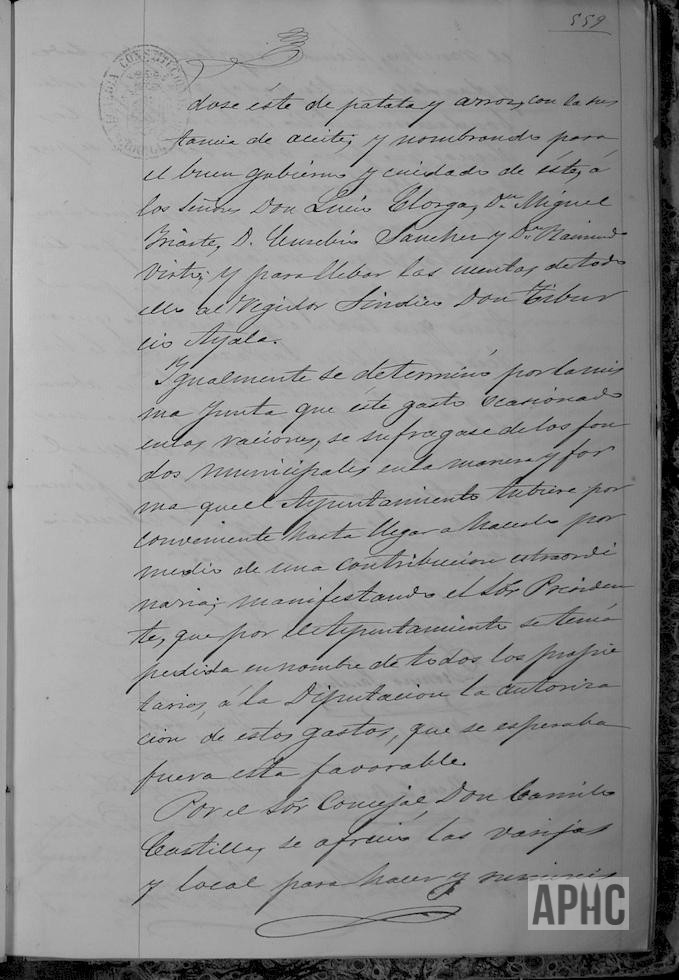 559
dose éste de patata y arroz, con la sus
tancia de aceite; y nombrando para
el buen gobierno y cuidado de éste, á
los Señores Don Lucio Elorga, Dn Miguel
Iriarte, D. Eusebio Sanchez y Dn Raimundo
Virto; y para llebar las cuentas de todo
ello al Regidor Sindico Don Tibur
cio Ayala.
Igualmente se determinó por la mis
ma Junta que este gasto ocasionado
en las raciones, se sufragase de los fon
dos municipales en la manera y for
ma que el Ayuntamiento tubiere por
conveniente hasta llegar a hacerlo por
medio de una contribucion estraordi
naria; manifestando el Sór Presiden
te, que por el Ayuntamiento se tenía
pedida en nombre de todos los propie
tarios, á la Diputacion la autoriza
cion de estos gastos, que se esperaba
fuera esta favorable.
Por el Sór Concejal Don Camilo
Castilla, se afreció las vasijas
y local para hacer y
APHC